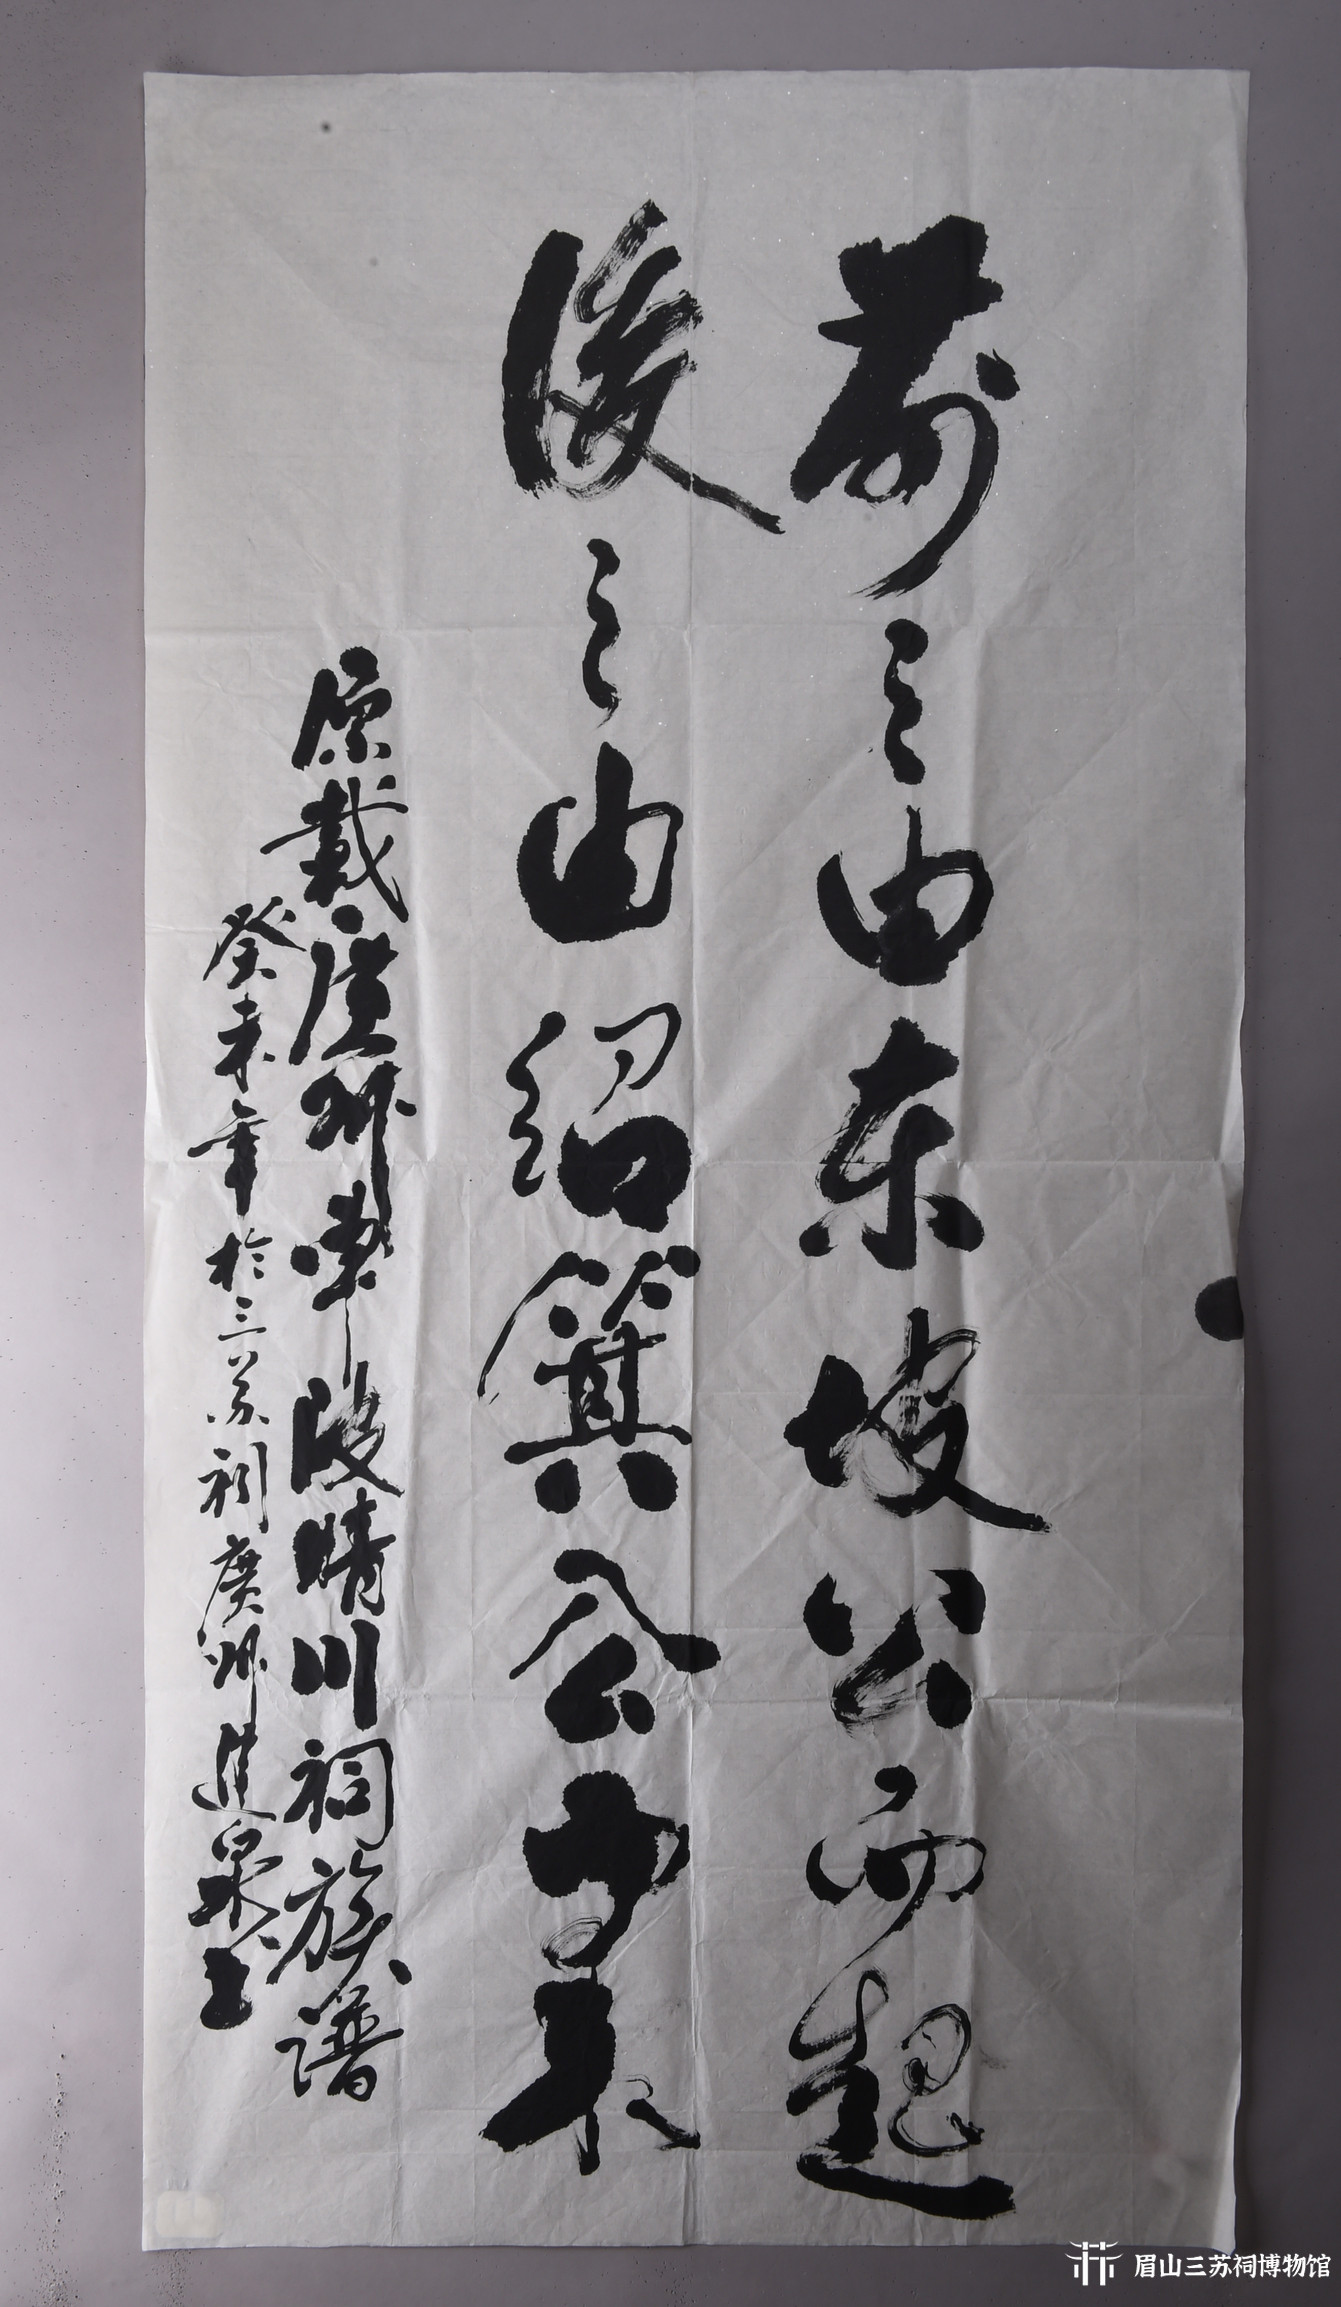 前之由东坡公而起
後之由绍箕公而来
原载广州萝峰陂晴川祠族谱
癸未年於三苏祠广州进泉书
眉山三苏祠博物馆